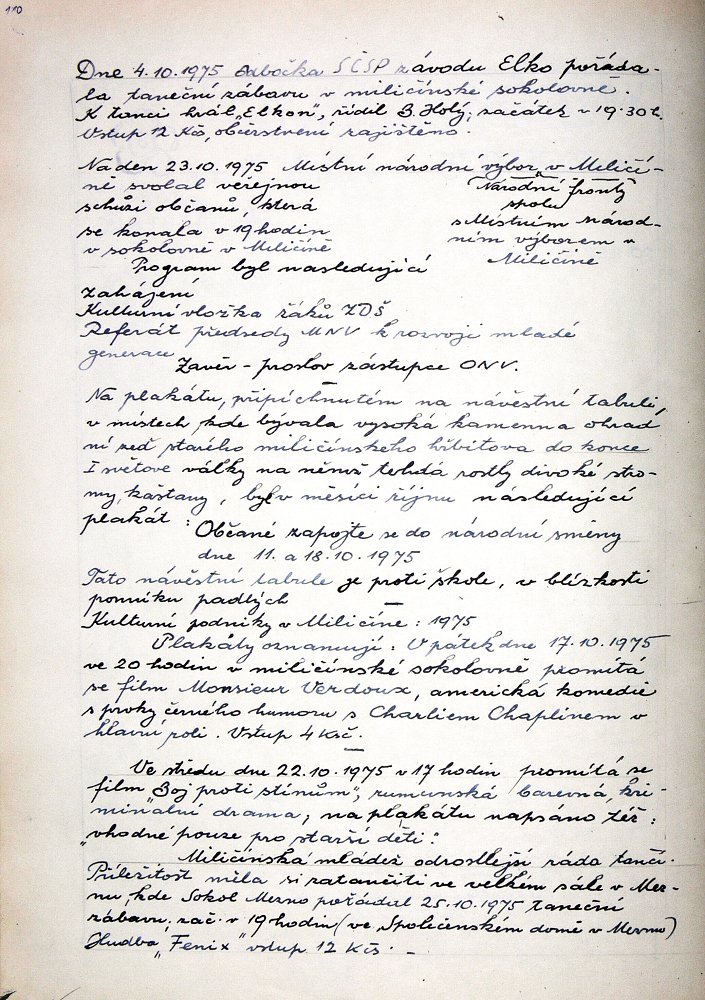 110
Dne 4.10.1975 odbočka SČSP závodu Elko pořáda-
la taneční zábavu v miličínské sokolovně.
K tanci hrál "Elkon", řídil B. Holý, začátek v 19.30 h.
Vstup 12 Kčs, občerstvení zajištěno.
Na den 23.10.1975 Místní národní výbor v Miličí-
ně svolal veřejnou
schůzi občanů, která
se konala v 19 hodin
v sokolovně v Miličíně
Národní fronty
spolu
s Místním národ-
ním výborem v
Miličíně
Program byl následující
Zahájení
Kulturní vložka žáků ZDŠ
Referát předsedy MNV k rozvoji mladé
generace
Závěr - proslov zástupce ONV.
Na plakátu, připíchnutém na návěstní tabuli,
v místech, kde bývala vysoká kamenná ohrad
ní zeď starého miličínského hřbitova do konce
I světové války na němž tehdá rostly divoké stro-
my, kaštany, byl v měsíci říjnu následující
plakát:
Občané zapojte se do národní směny
dne 11. a 18.10.1975
Tato návěstní tabule je proti škole, v blízkosti
pomníku padlých
Kulturní podniky v Miličíně: 1975
Plakáty oznamují: V pátek dne 17.10.1975
ve 20 hodin v miličínské sokolovně promítá
se film Monsieur Verdoux, americká komedie
s prvky černého humoru s Charliem Chaplinem v
hlavní roli. Vstup 4 Kčs.
Ve středu dne 22.10.1975 v 17 hodin promítá se
film "Boj proti stínům", rumunská barevná, kri-
minální drama, na plakátu napsáno též:
"vhodné pouze pro starší děti."
Miličínská mládež odrostlejší ráda tančí.
Příležitost měla si zatančiti ve velkém sále v Mez-
nu, kde Sokol Mezno pořádal 25.10.1975 taneční
zábavu, zač. v 19 hodin (ve Společenském domě v Meznu)
Hudba "Fenix" vstup 12 Kčs. -